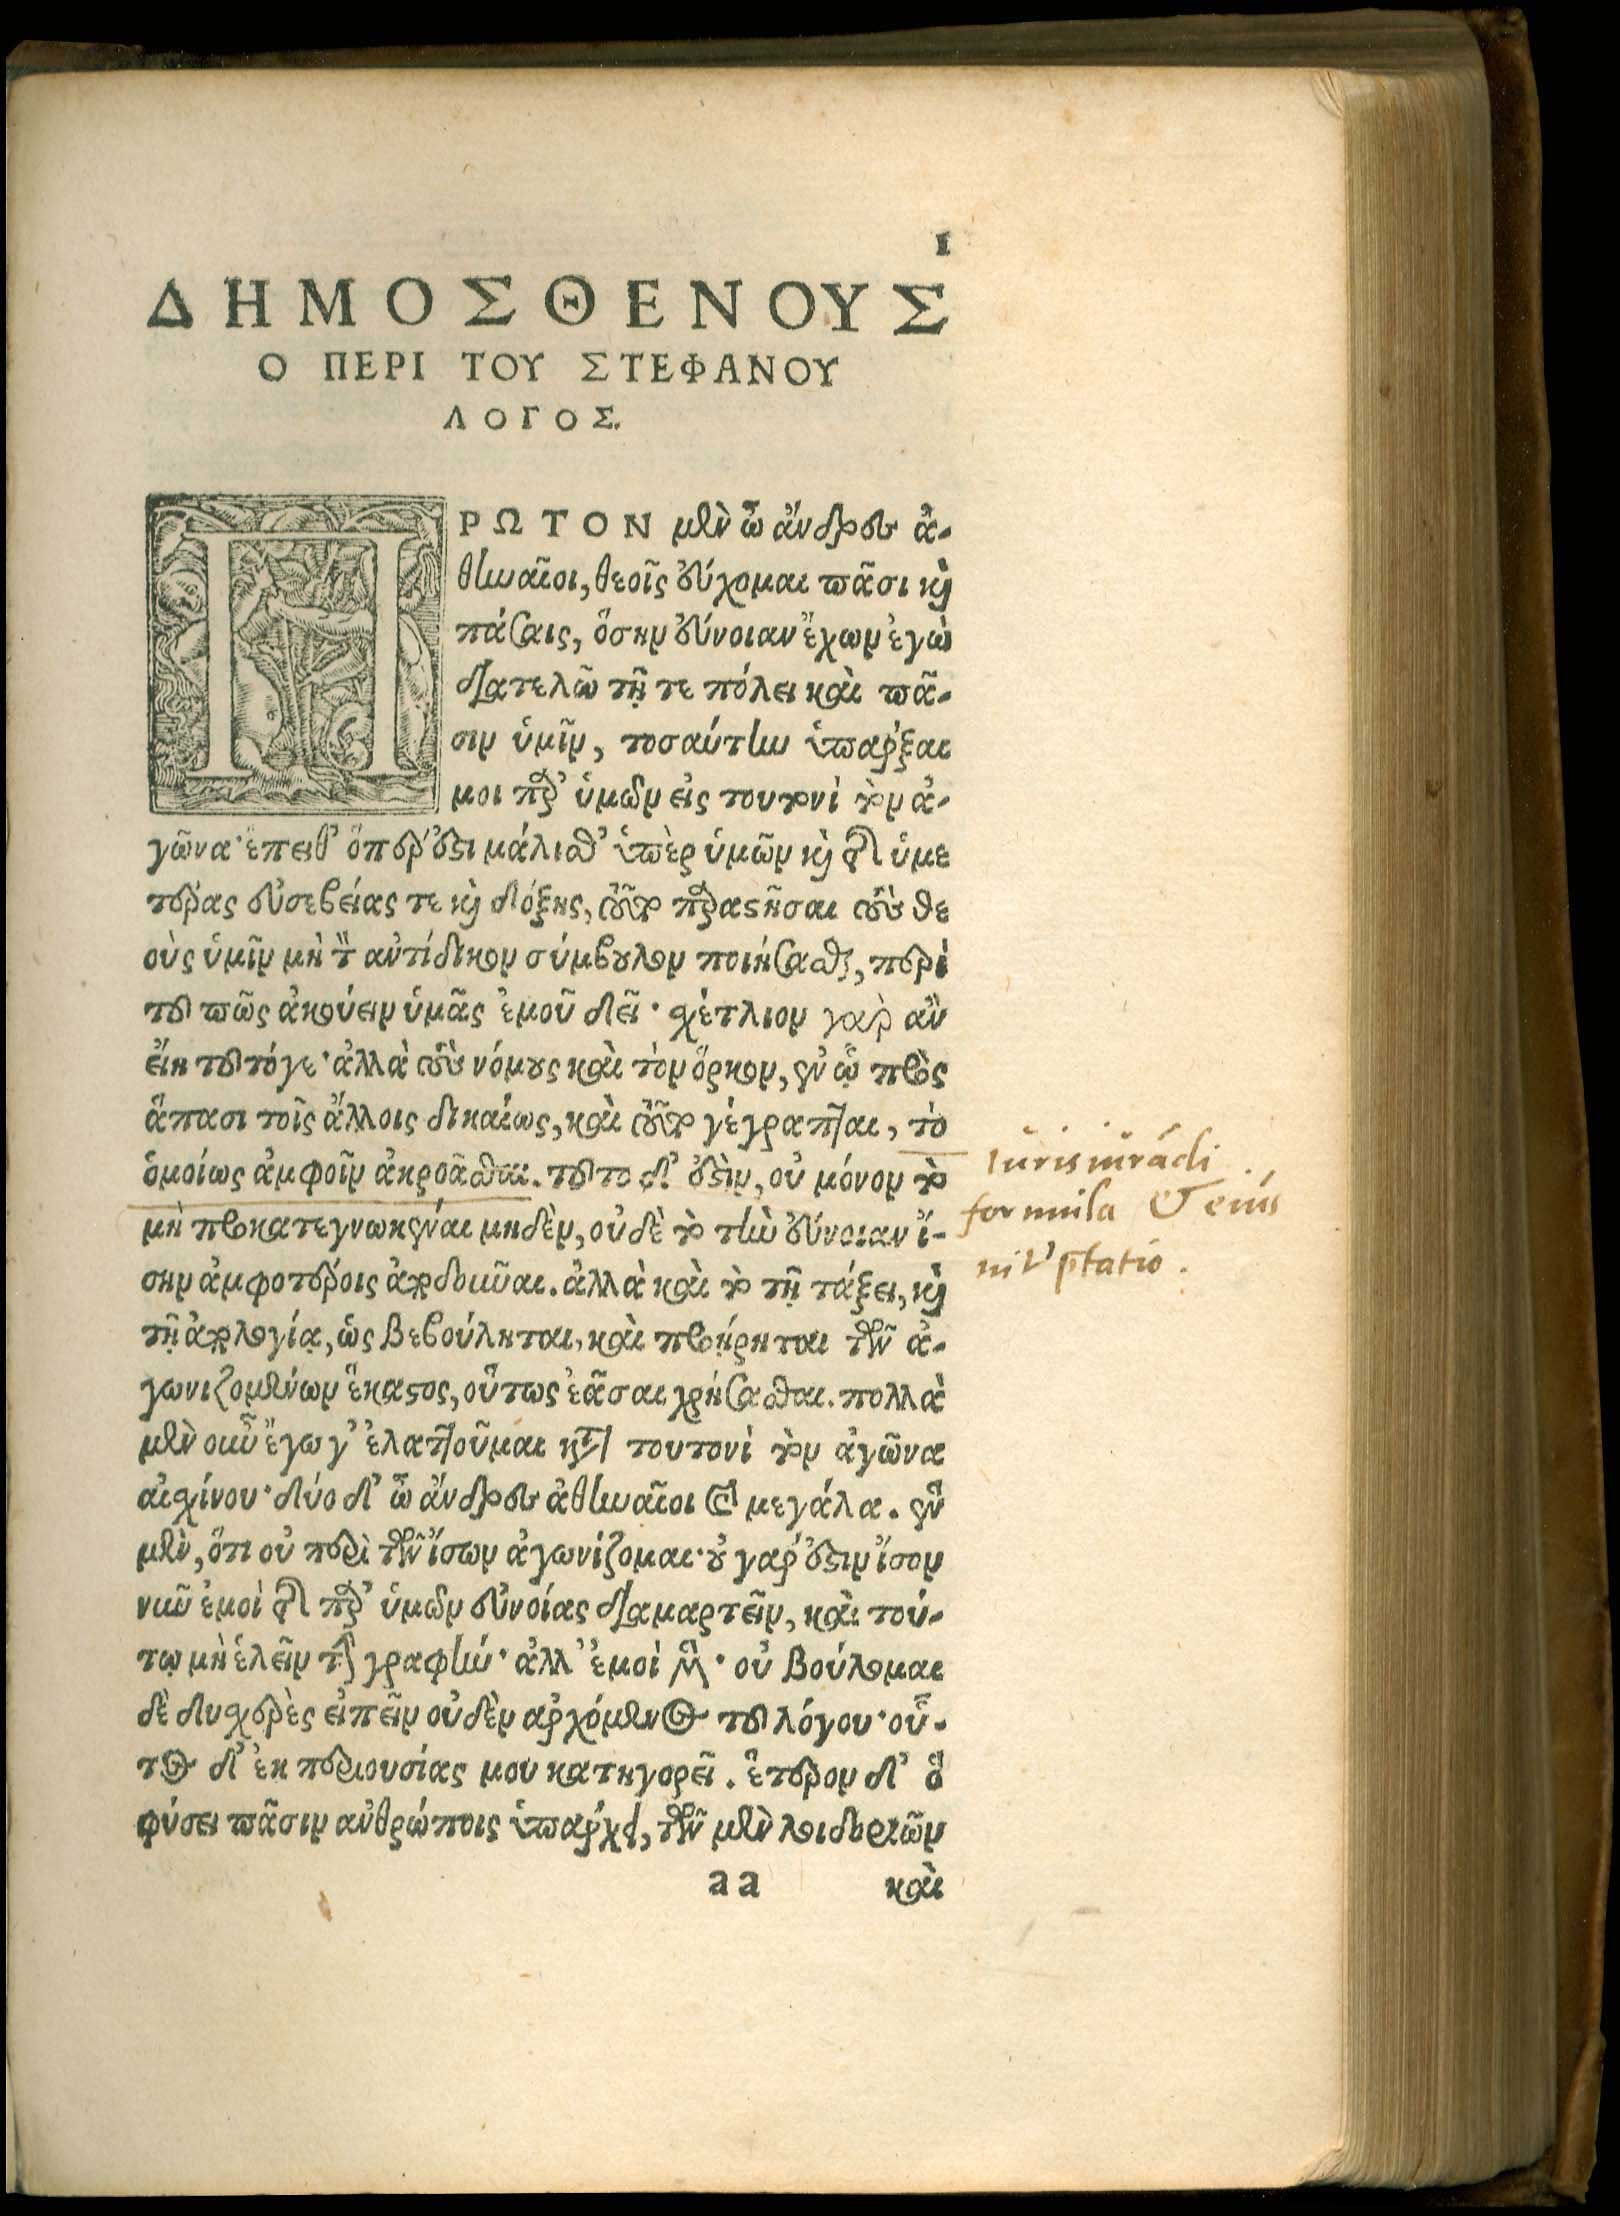 1
ΔΗΜΟΣΘΕΝΟΥΣ
Ο ΠΕΡΙ ΤΟΥ ΣΤΕΦΑΝΟΥ
ΛΟΓΟΣ.
ΠΡΩΤΟΝ μὲν ὦ ἄνδρες ἀ-
θηναῖοι, θεοῖς εὔχομαι πᾶσι καὶ
πάσαις, ὅσην εὔνοιαν ἔχων ἐγὼ
διατελῶ τῇ τε πόλει καὶ πᾶ-
σιν ὑμῖν, τοσαύτην ὑπάρξαι
μοι παρ' ὑμῶν εἰς τουτονὶ τὸν ἀ-
γῶνα· ἔπειθ' ὅπερ ἐστὶ μάλισθ' ὑπὲρ ὑμῶν καὶ τῆς ὑμε
τέρας εὐσεβείας τε καὶ δόξης, τοῦτο παραστῆσαι τοὺς θε
οὺς ὑμῖν μὴ τὸν ἀντίδικον σύμβουλον ποιήσασθαι, περὶ
τοῦ πῶς ἀκούειν ὑμᾶς ἐμοῦ δεῖ· σχέτλιον γὰρ ἂν
εἴη τοῦτό γε· ἀλλὰ τοὺς νόμους καὶ τὸν ὅρκον, ἐν ᾧ πρὸς
ἅπασι τοῖς ἄλλοις δικαίως, καὶ τοῦτο γέγραπται, τὸ
ὁμοίως ἀμφοῖν ἀκροᾶσθαι. τοῦτο δ' ἐστὶν, οὐ μόνον τὸ
μὴ προκατεγνωκέναι μηδὲν, οὐδὲ τὸ τὴν εὔνοιαν ἴ-
σην ἀμφοτέροις ἀποδοῦναι. ἀλλὰ καὶ τὸ τῇ τάξει, καὶ
τῇ ἀπολογίᾳ, ὡς βεβούληται, καὶ προῄρηται τῶν ἀ-
γωνιζομένων ἕκαστος, οὕτως ἐᾶσαι χρήσασθαι. πολλὰ
μὲν οὖν ἔγωγ' ἐλαττοῦμαι κατὰ τουτονὶ τὸν ἀγῶνα
αἰσχίνου· δύο δ' ὦ ἄνδρες ἀθηναῖοι καὶ μεγάλα. ἓν
μὲν, ὅτι οὐ περὶ τῶν ἴσων ἀγωνίζομαι· οὐ γάρ ἐστιν ἴσον
νῦν ἐμοὶ τῆς παρ' ὑμῶν εὐνοίας διαμαρτεῖν, καὶ τού-
τῳ μὴ ἑλεῖν τὴν γραφήν· ἀλλ' ἐμοὶ μὲν· οὐ βούλομαι
δὲ δυσχερὲς εἰπεῖν οὐδὲν ἀρχόμενος τοῦ λόγου· οὗ-
τος δ' ἐκ περιουσίας μου κατηγορεῖ. ἕτερον δ' ὃ
φύσει πᾶσιν ἀνθρώποις ὑπάρχει, τῶν μὲν λοιδοριῶν
aa καὶ
Iurisiurādi
formula & eius